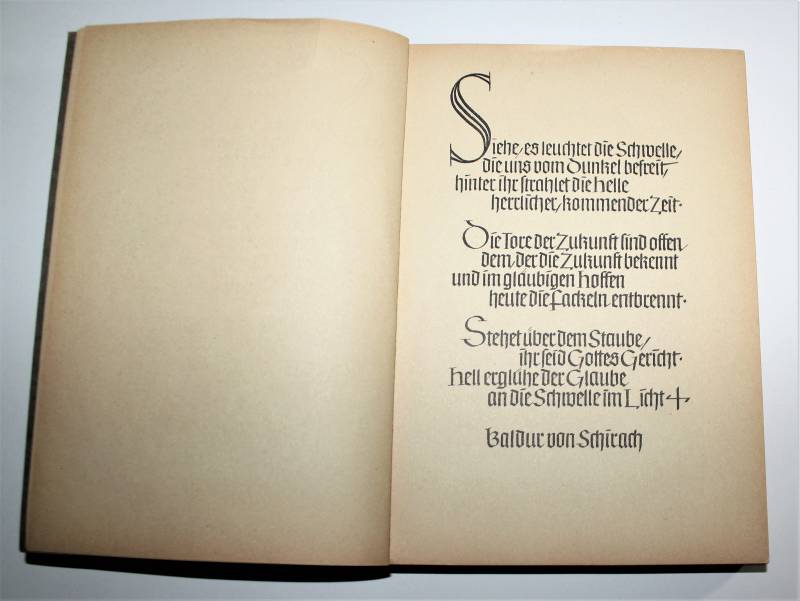 Siehe, es leuchtet die Schwelle,
die uns vom Dunkel befreit,
hinter ihr strahlet die helle
herrlicher, kommender Zeit.
Die Tore der Zukunft sind offen
dem, der die Zukunft bekennt
und im gläubigen hoffen
heute die Fackeln entbrennt.
Stehet über dem Staube,
ihr seid Gottes Gericht.
hell erglühe der Glaube
an die Schwelle im Licht +
Baldur von Schirach